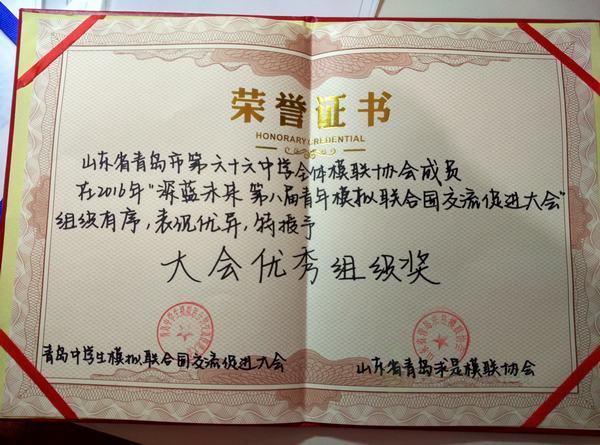 荣誉证书
HONORARY CREDENTIAL
山东省青岛市第六十六中学全体模联协会成员
在2016年“深蓝 第八届青年模拟联合国交流促进大会”
组织有序,表现优异,特授予
大会优秀组织奖
青岛中学生模拟联合国交流促进大会
山东省青岛求是模联协会